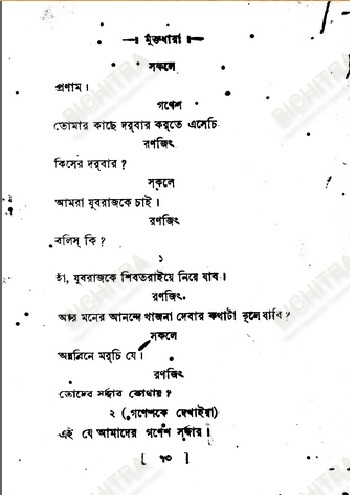 মুক্তধারা
সকলে
প্রণাম।
গণেশ
তোমার কাছে দরবার করতে এসেচি
রণজিৎ
কিসের দরবার ?
সকলে
আমরা যুবরাজকে চাই।
রণজিৎ
বলিস্ কি ?
১
হাঁ, যুবরাজকে শিবতরাইয়ে নিয়ে যাব।
রণজিৎ
আর মনের আনন্দে খাজনা দেবার কথাটা ভুলে যাবি ?
সকলে
অন্নবিনে মরচি যে।
রণজিৎ
তোদের সর্দ্দার কোথায় ?
২ (গণেশকে দেখাইয়া)
এই যে আমাদের গণেশ সর্দ্দার।
[ ৭৩ ]
BICHITRA
BICHITRA
BICHITRA
BICHITRA